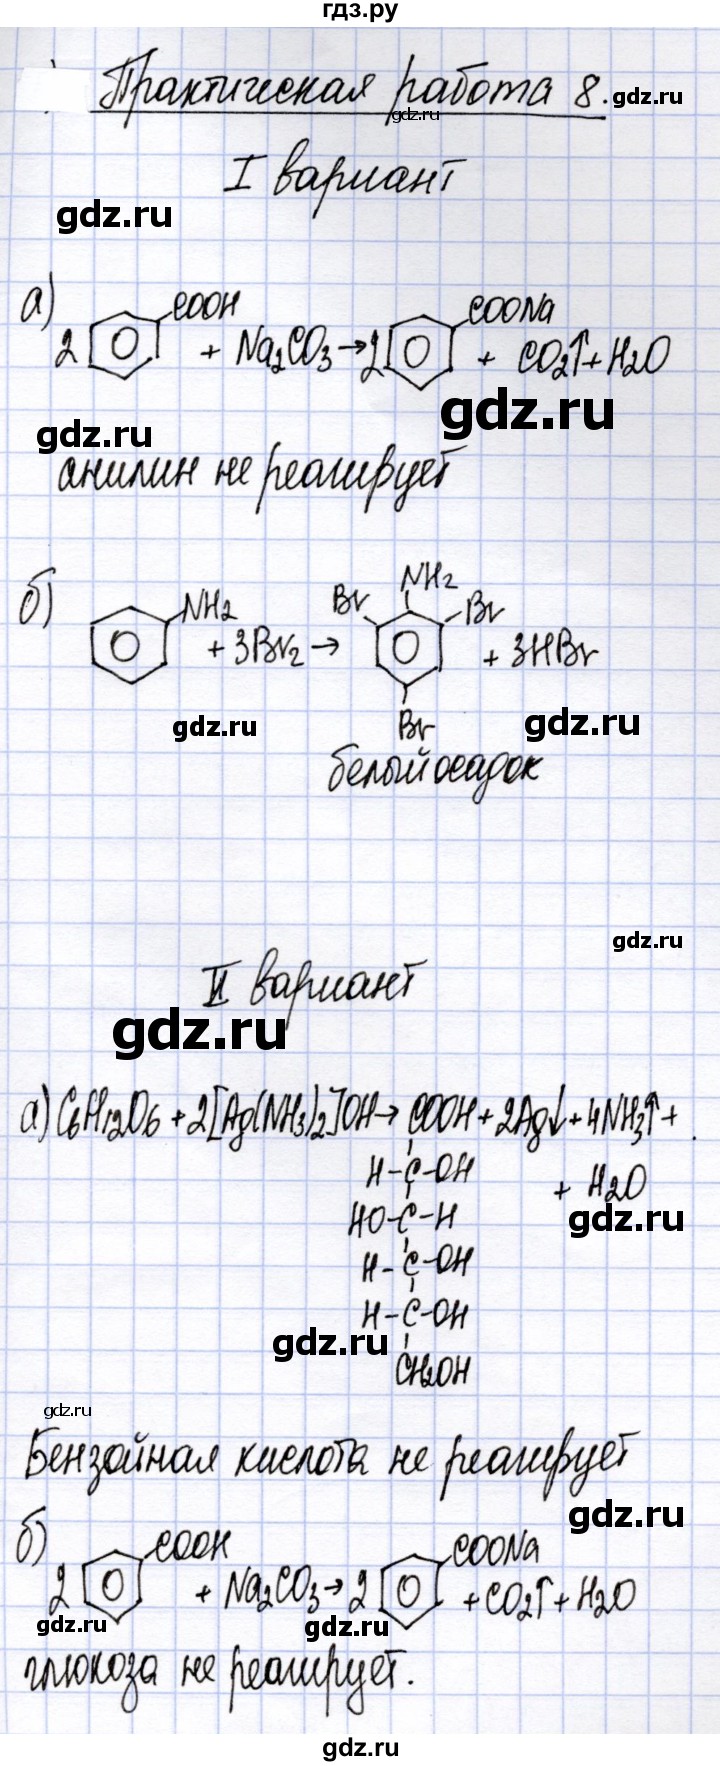 гдз.ру
Практическая работа 8. gdz.ru
gdz.ru
I вариант
gdz.ru
а) 2 COOH + Na2CO3 → 2 COONa + CO2↑ + H2O
gdz.ru
gdz.ru
анилин не реагирует
б) NH2 + 3Br2 → Br NH2 Br Br + 3HBr
gdz.ru
gdz.ru
белый осадок
gdz.ru
II вариант
gdz.ru
а) C6H12O6 + 2[Ag(NH3)2]OH → COOH + 2Ag↓ + 4NH3↑ +
H-C-OH + H2O
HO-C-H
gdz.ru
H-C-OH
H-C-OH
gdz.ru
CH2OH
gdz.ru
Бензойная кислота не реагирует
gdz.ru
б) 2 COOH + Na2CO3 → 2 COONa + CO2↑ + H2O
gdz.ru
gdz.ru
глюкоза не реагирует.
gdz.ru